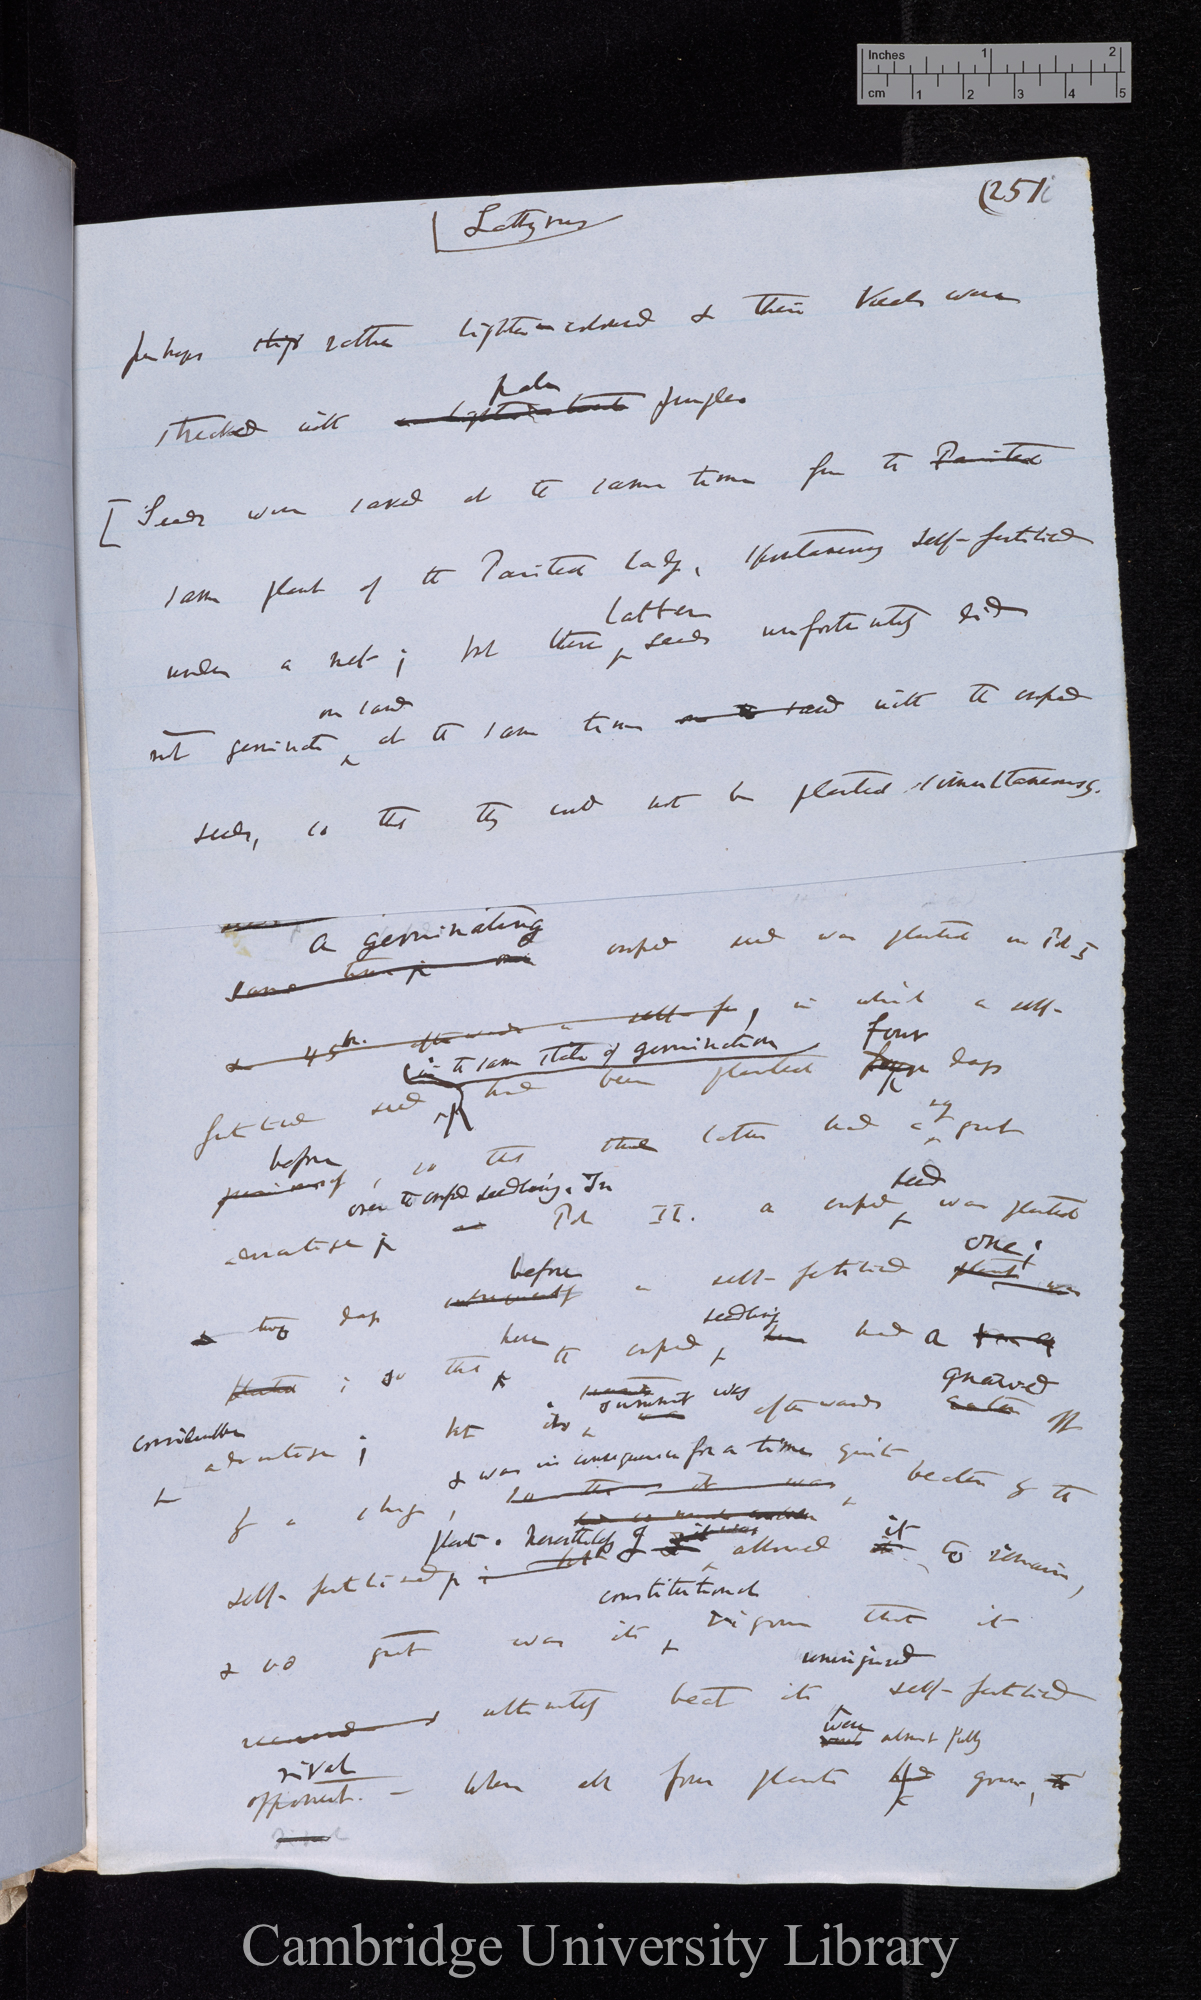 Inches 1 2
cm 1 2 3 4 5
(251i
Lathyrus
perhaps rather lighter coloured & their keels were
pale
streaked with purple.
[Seeds were saved at the same time from the Painted
same plant of the Painted Lady, spontaneously self-fertilised
latter
under a net; but these seeds unfortunately did
on sand
not germinate at the same time on sand with the crossed
seeds, so that they could not be planted simultaneously.
a germinating
same time crossed seed was planted in Pot I
& 48 hr. afterwards a self-fer, in which a self-
in the same state of germination four
fertilised seed had been planted days
before, so that the latter had a great
over the crossed seedling. In seed
advantage Pot II. a crossed was planted
before one;
two days a self-fertilised plant was
here seedling
planted; so that the crossed had a
summit was gnawed
considerable
advantage; but its afterwards off
& was in consequence for a time quite
by a slug, so that it was beaten by the
plant. Nevertheless I it
self-fertilised allowed to remain,
constitutional
& so great was its vigour that it
uninjured
ultimately beat its self-fertilised
were almost fully
rival
opponent. – When all four plants grown, the
rival
Cambridge University Library